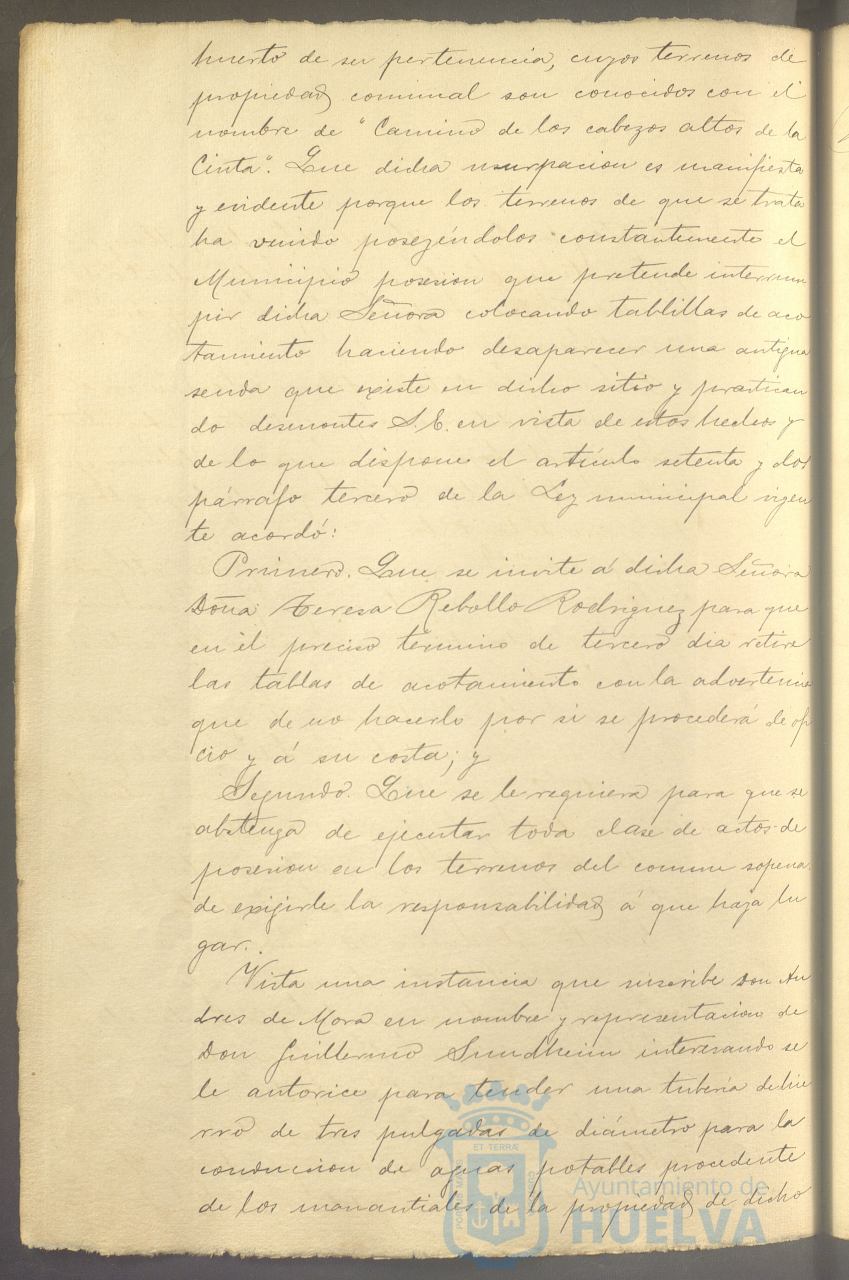 huerto de su pertenencia, cuyos terrenos de
propiedad comunal son conocidos con el
nombre de "Camino de los cabezos altos de la
Cinta". Que dicha usurpacion es manifiesta
y evidente porque los terrenos de que se trata
ha venido poseyéndolos constantemente el
Municipio posesion que pretende interrum
pir dicha Señora colocando tablillas de aco
tamiento haciendo desaparecer una antigua
senda que existe en dicho sitio y practican
do desmontes S.E. en vista de estos hechos y
de lo que dispone el artículo setenta y dos
párrafo tercero de la Ley municipal vigen
te acordó:
Primero. Que se invite á dicha Señora
Doña Teresa Rebollo Rodriguez para que
en el preciso termino de tercero dia retire
las tablas de acotamiento con la advertencia
que de no hacerlo por si se procederá de ofi
cio y á su costa; y
Segundo. Que se le requiera para que se
abstenga de ejecutar toda clase de actos de
posesion en los terrenos del comun sopena
de exijirle la responsabilidad á que haja lu
gar.
Vista una instancia que suscribe Don An
dres de Mora en nombre y representacion de
Don Guillermo Sundheim interesando se
le autorice para tender una tuberia de hie
rro de tres pulgadas de diámetro para la
conduccion de aguas potables procedente
de los manantiales de la propiedad de dicho
ET TERRÆ
Ayuntamiento de
HUELVA